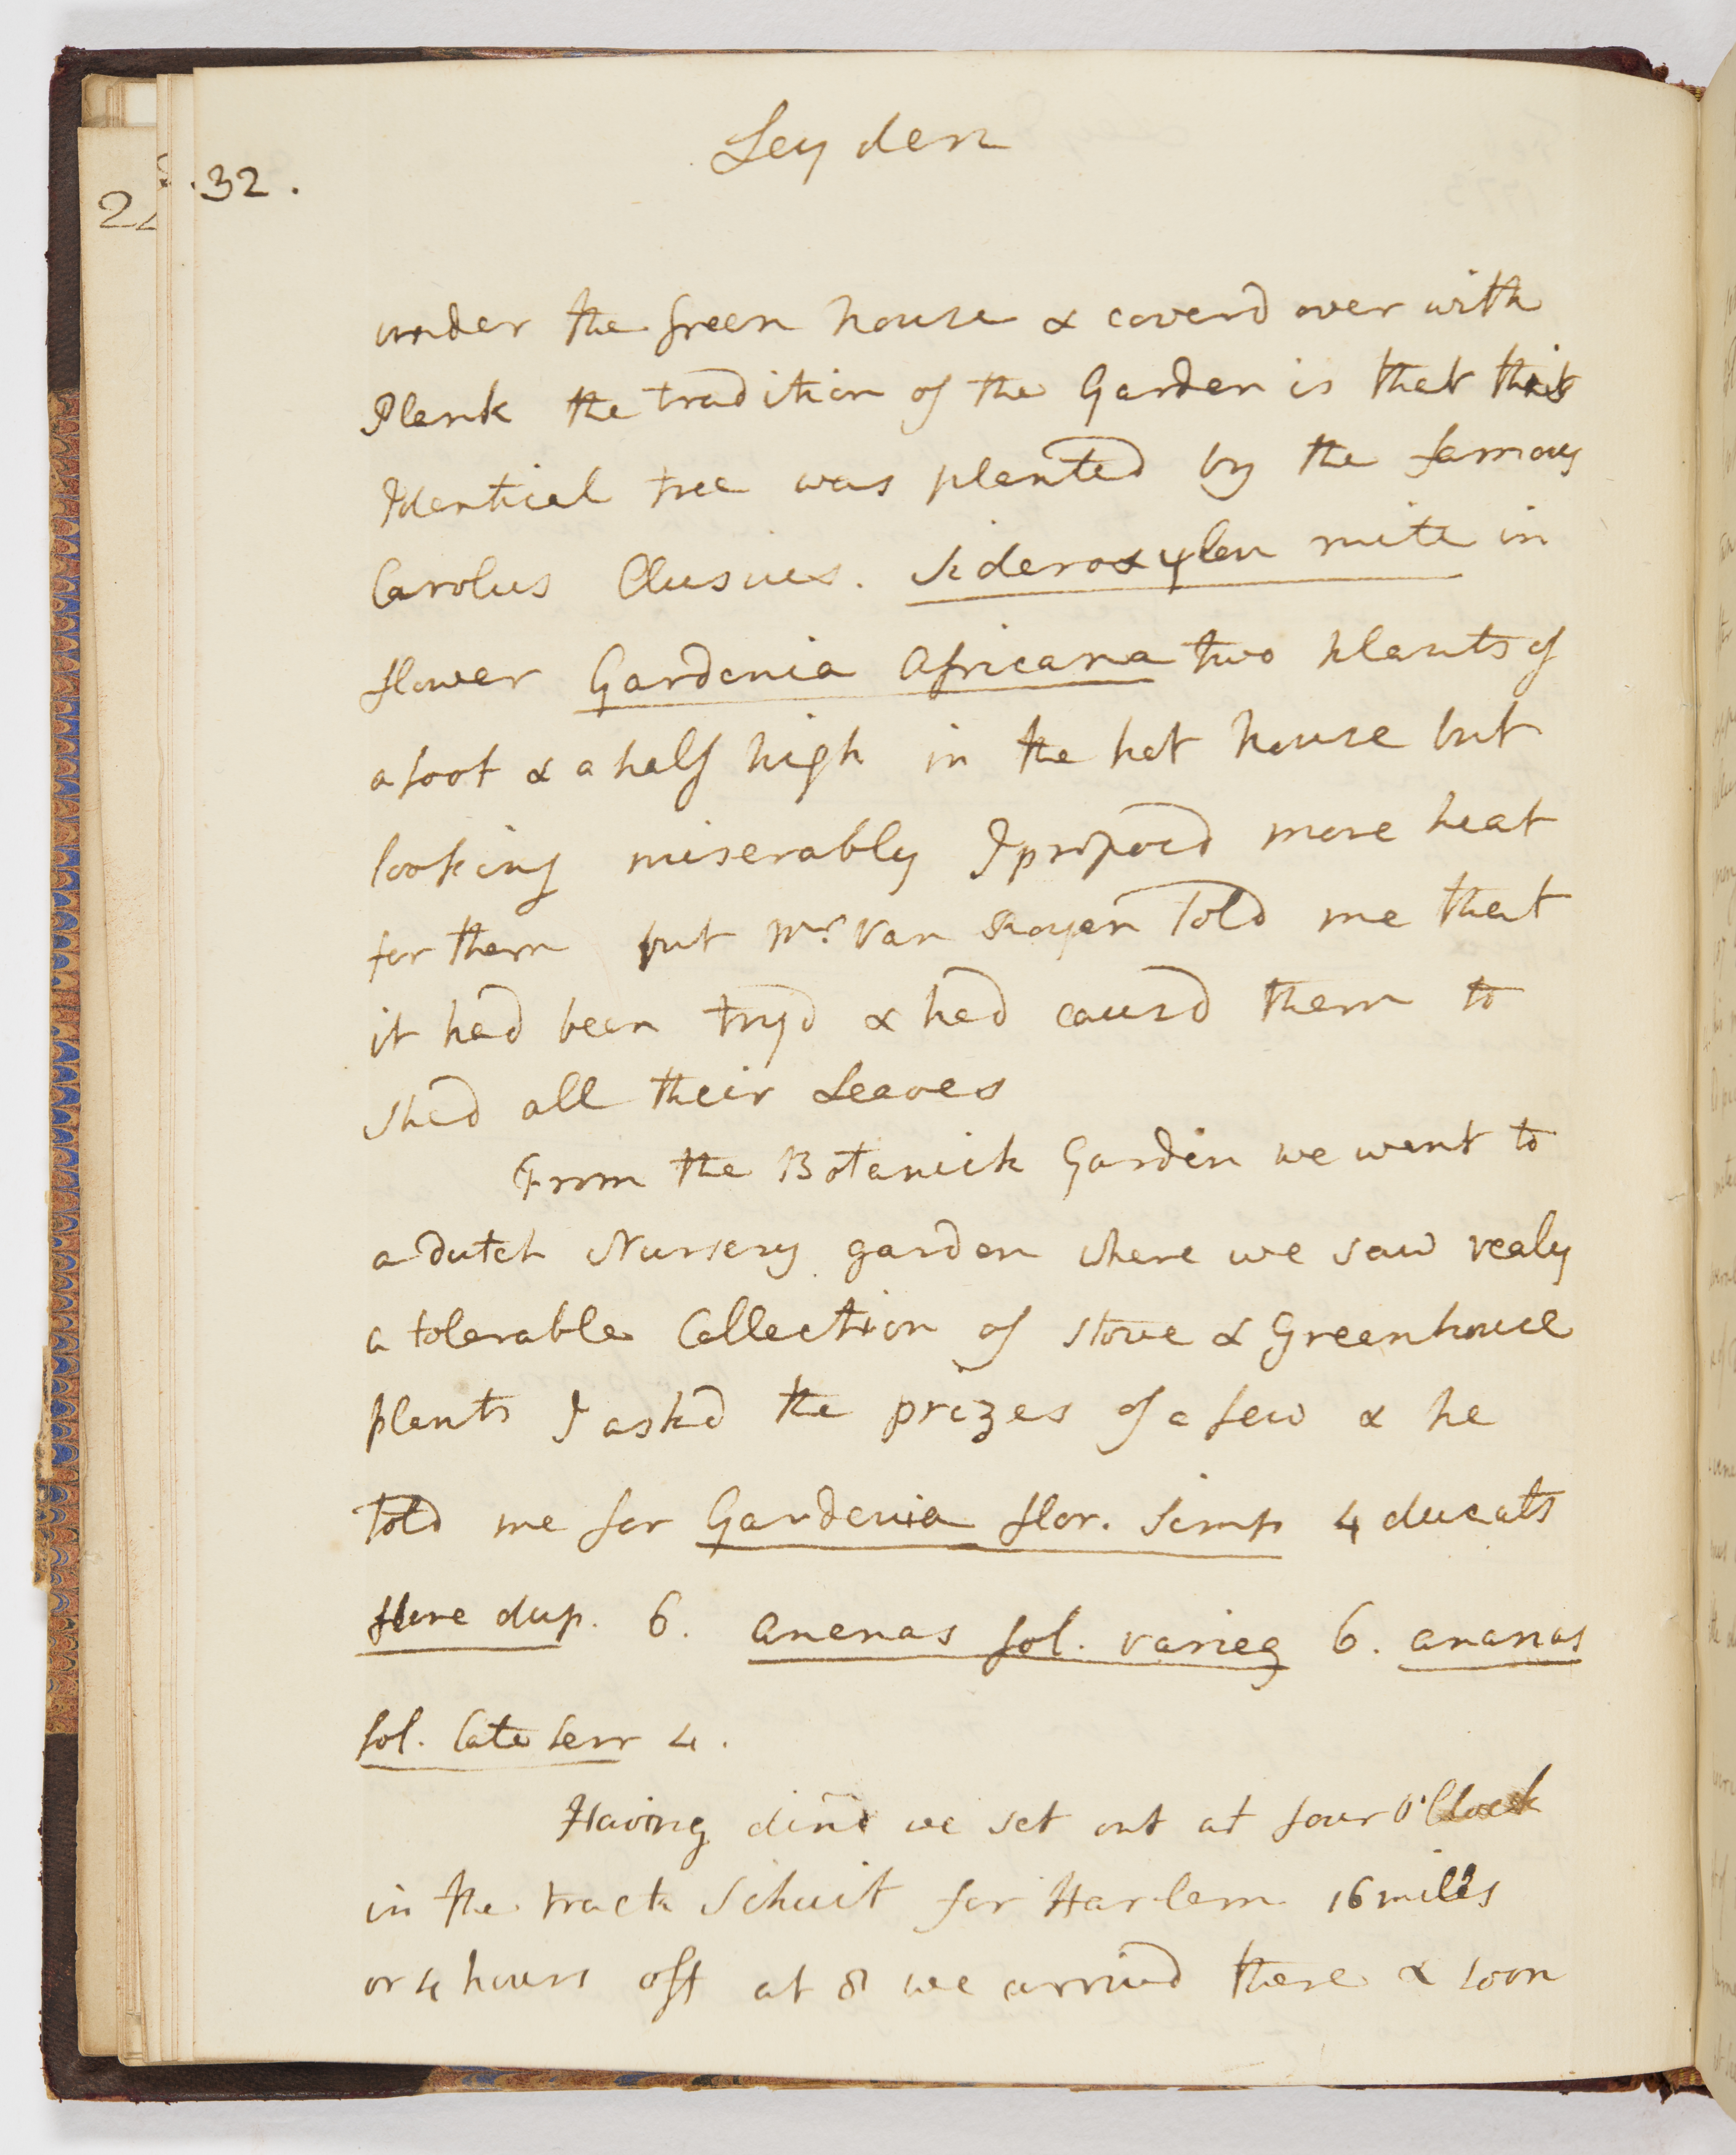 Leyden
32.
under the Green house & coverd over with
Plank the tradition of the Garden is that this
Identical tree was planted by the famous
Carolus Clusius. Sideroxylon mite in
flower Gardenia Africana two plants of
a foot & a half high in the hot house but
looking miserably I proposd more heat
for them but Mr. Van Royen Told me that
it had been tryd & had causd them to
shed all their Leaves
From the Botanick Garden we went to
a dutch Nursery garden where we saw realy
a tolerable Collection of stove & Greenhouse
plants I askd the prizes of a few & he
told me for Gardenia flor. simp 4 ducats
flore dup. 6. Ananas fol. varieg 6. ananas
fol. late serr 4.
Having dind we set out at four O'Clock
in the track Schuit for Harlem 16 miles
or 4 hours off at 8 we arrivd there & soon